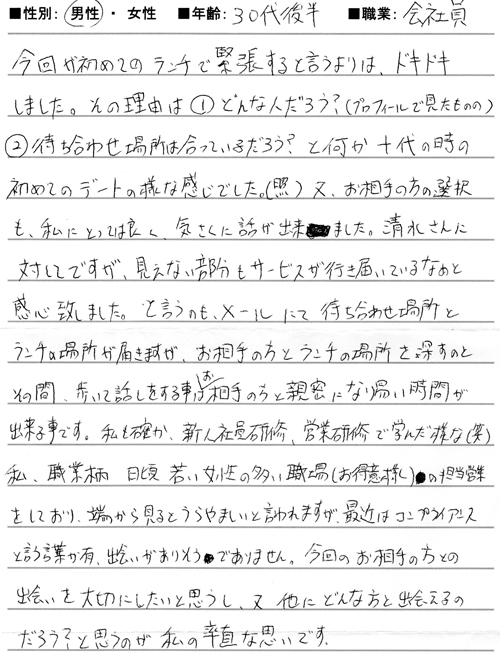 ■性別: 男性 ・ 女性 ■年齢: 30代後半 ■職業: 会社員
今回が初めてのランチで緊張すると言うよりは、ドキドキ
しました。その理由は①どんな人だろう?(プロフィールで見たものの)
②待ち合わせ場所は合っているだろう?と何か十代の時の
初めてのデートの様な感じでした。(照)又、お相手の方の選択
も、私にとっては良く、気さくに話が出来ました。清水さんに
対してですが、見えない部分もサービスが行き届いているなあと
感心致しました。と言うのも、メールにて待ち合わせ場所と
ランチの場所が届きますが、お相手の方とランチの場所を探すのと
その間、歩いて話しをする事はお相手の方と親密になり易い時間が
出来る事です。私も確か、新人社員研修、営業研修で学んだ様な(笑)
私、職業柄 日頃 若い女性の多い職場(お得意様)の担当営業
をしており、端から見るとうらやましいと言われますが、最近はコンプライアンス
と言う言葉が有、出会いがありそうでありません。今回のお相手の方との
出会いを大切にしたいと思うし、又他にどんな方と出会えるの
だろう?と思うのが私の率直な思いです。